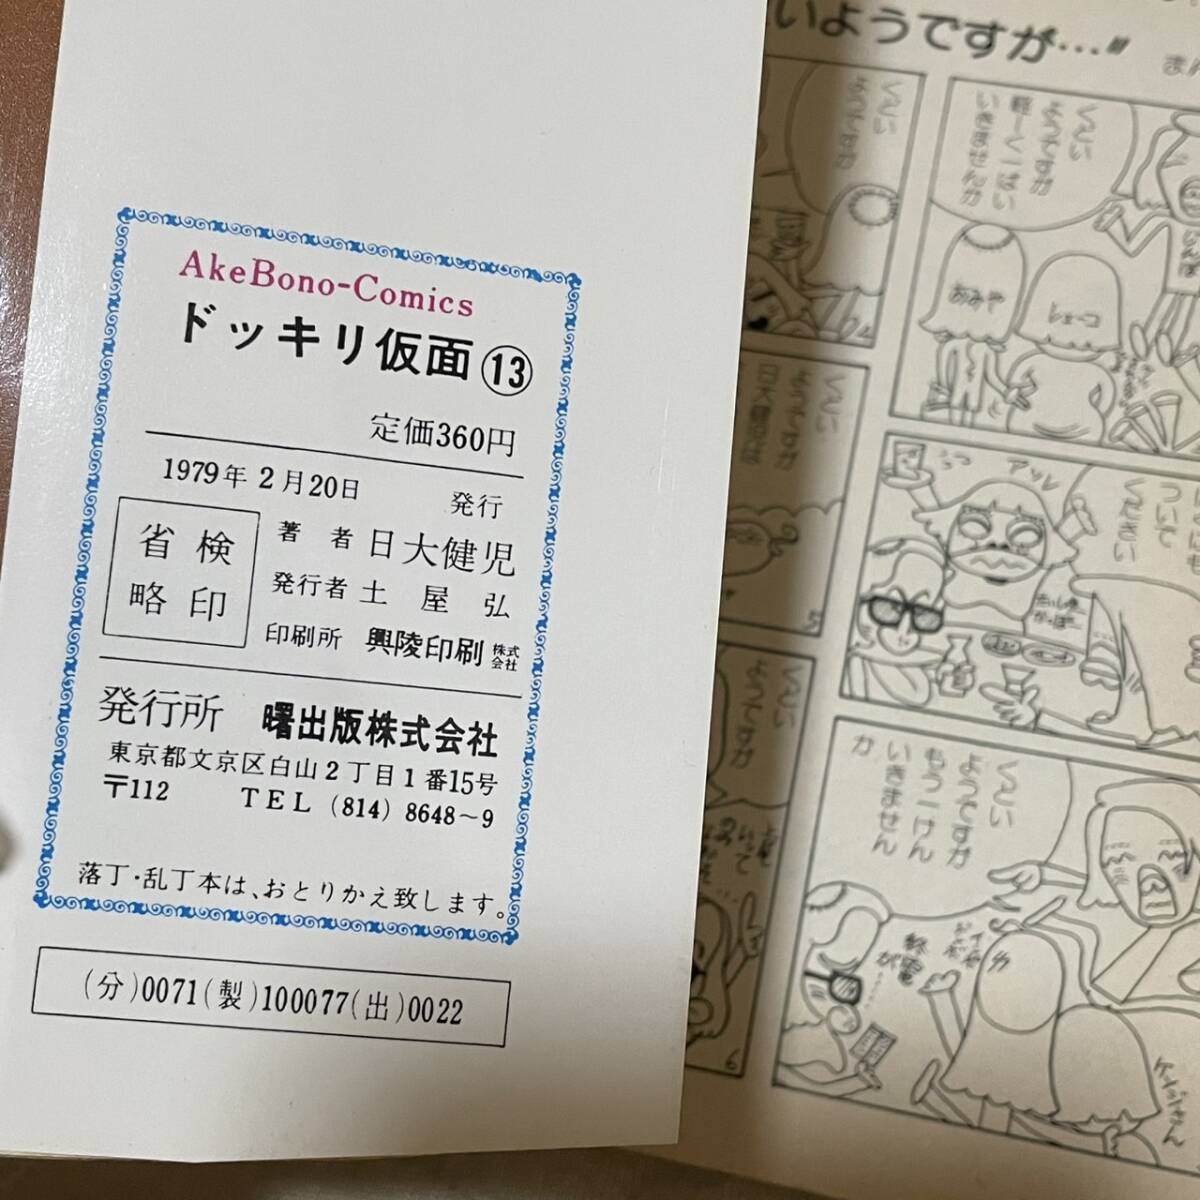 AkeBono-Comics
ドッキリ仮面⑬
定価360円
1979年2月20日 発行
検印
省略
著者 日大健児
発行者 土屋弘
印刷所 興陵印刷株式会社
発行所 曙出版株式会社
東京都文京区白山2丁目1番15号
〒112 TEL (814) 8648〜9
落丁・乱丁本は、おとりかえ致します。
(分)0071(製)100077(出)0022
いようですが…〃
まん
くどい
ようですが
軽ーく一ぱい
いきませんか
おみや
しェーコ
くどい
ようですが
4
アッレ
ついて
ください
くどい
ようですが
日大健児は
5
くどい
ようですが
もう一けん
いきません
か
終電
が……
ケンジさん
くどい
ようですが
6